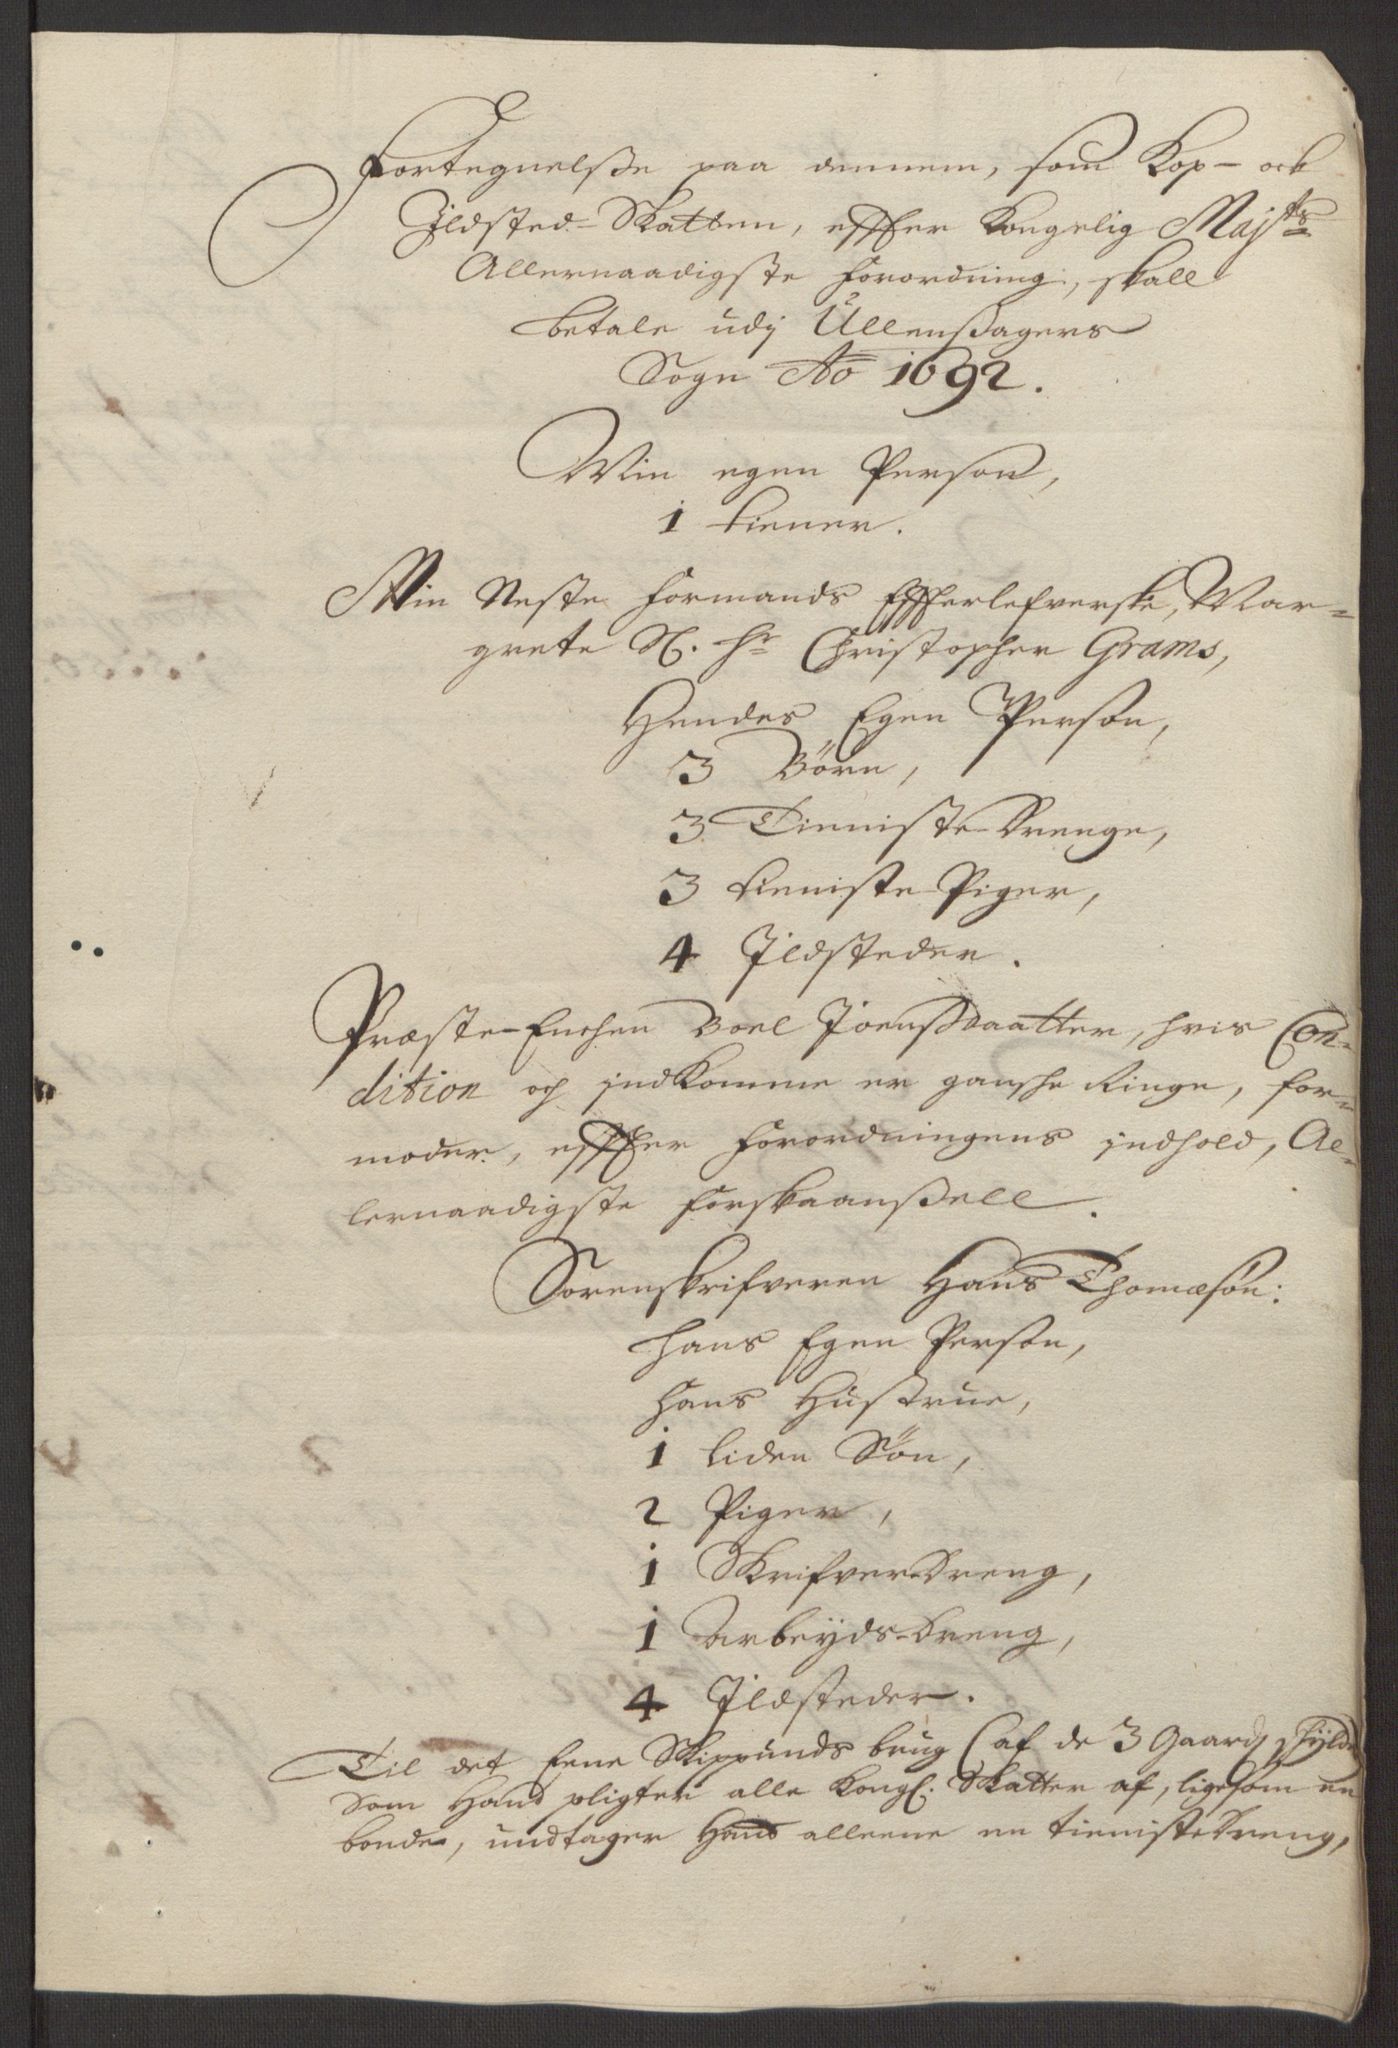 Fortegnelsse paa dennem, som Kop- och
Ildsted-Skatten, effter Kongelig Majts
Allernaadigste forordning, skall
betale udj Ullensagers
Sogn Ao 1692.
Min egen Person,
1 tiener.
Min Neste formands Effterlefverske, Mar-
grete Sl. Hr Christopher Grams,
Hendes Egen Person,
3 Börn,
3 Tieniste-Drenge,
3 tieniste-Piger,
4 Ildsteder.
Præste-Enchen Boel Joenssdaatter, hvis Con-
dition og indkomme er gansche Ringe, for-
moder, effter forordningens indhold, Al-
lernaadigste forskaansell.
Sorenskrifveren Hans Thomæsön:
hans Egen Person,
hans Hustrue,
1 liden Sön,
2 Piger,
1 Skrifver-Dreng,
1 Arbeyds-dreng,
4 Ildsteder.
Til det Ene Skippunds brug (af de 3 Gaard
Som Hand pligter alle Kongl. Skatter af, ligesom en
bonde, undtager Hand alleene en tienisteDreng,